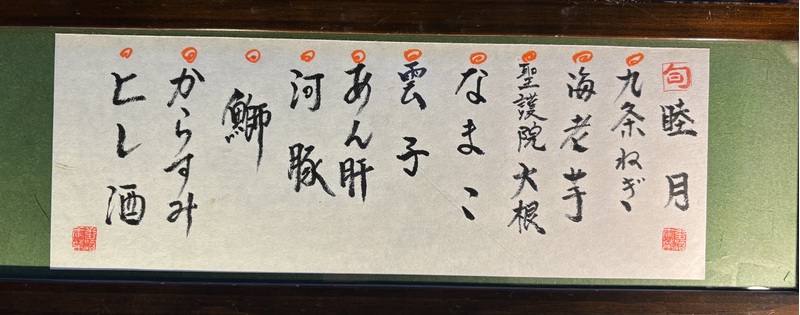 旬 睦月
九条ねぎ
海老芋
聖護院大根
なまこ
雲子
あん肝
河豚
鰤
からすみ
ヒレ酒